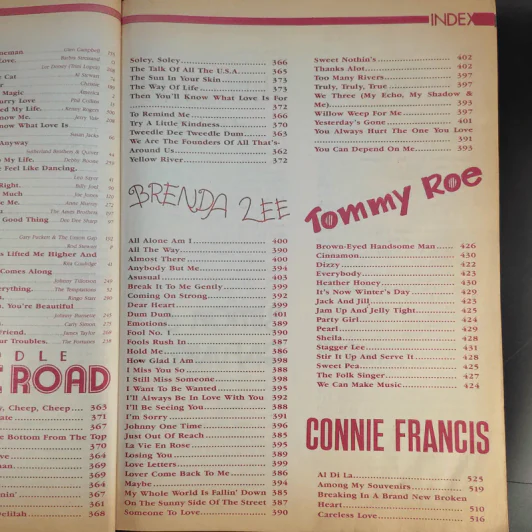 INDEX
neman.
Love.
Cat
Magic
urry Love
ed My Life.
now Me.
now What Love Is
Anyway
o My Life.
e Feel Like Dancing.
Right.
Much
e Me.
Good Thing
s Lifted Me Higher And
Comes Along
erything.
n.
, You're Beautiful
n.
friend.
or Troubles.
DDLE
ROAD
y, Cheep, Cheep.... 363
ate 371
367
e Bottom From The Top
370
ve 364
man 369
369
364
nin' 367
361
elilah 368
Soley, Soley 366
The Talk Of All The U.S.A. 365
The Sun In Your Skin 373
The Way Of Life 373
Then You'll Know What Love Is For
372
To Remind Me 366
Try A Little Kindness 370
Tweedle Dee Tweedle Dum 363
We Are The Founders Of All That's-
Around Us 362
Yellow River 372
BRENDA LEE
All Alone Am I 400
All The Way 390
Almost There 400
Anybody But Me 394
Asusual 403
Break It To Me Gently 399
Coming On Strong 392
Dear Heart 399
Dum Dum 401
Emotions 389
Fool No. 1 390
Fools Rush In 387
Hold Me 386
How Glad I Am 398
I Miss You So 388
I Still Miss Someone 398
I Want To Be Wanted 395
I'll Always Be In Love With You 392
I'll Be Seeing You 388
I'm Sorry 391
Johnny One Time 396
Just Out Of Reach 385
La Vie En Rose 395
Losing You 389
Love Letters 399
Lover Come Back To Me 386
Maybe 394
My Whole World Is Fallin' Down 385
On The Sunny Side Of The Street 387
Someone To Love 390
Sweet Nothin's 402
Thanks Alot 402
Too Many Rivers 397
Truly, Truly, True 397
We Three (My Echo, My Shadow &
Me) 393
Willow Weep For Me 397
Yesterday's Gone 401
You Always Hurt The One You Love
391
You Can Depend On Me 393
Tommy Roe
Brown-Eyed Handsome Man 426
Cinnamon 430
Dizzy 422
Everybody 423
Heather Honey 430
It's Now Winter's Day 429
Jack And Jill 423
Jam Up And Jelly Tight 425
Party Girl 424
Pearl 429
Sheila 428
Stagger Lee 431
Stir It Up And Serve It 428
Sweet Pea 425
The Folk Singer 427
We Can Make Music 424
CONNIE FRANCIS
Al Di La 525
Among My Souvenirs 519
Breaking In A Brand New Broken
Heart 510
Careless Love 516